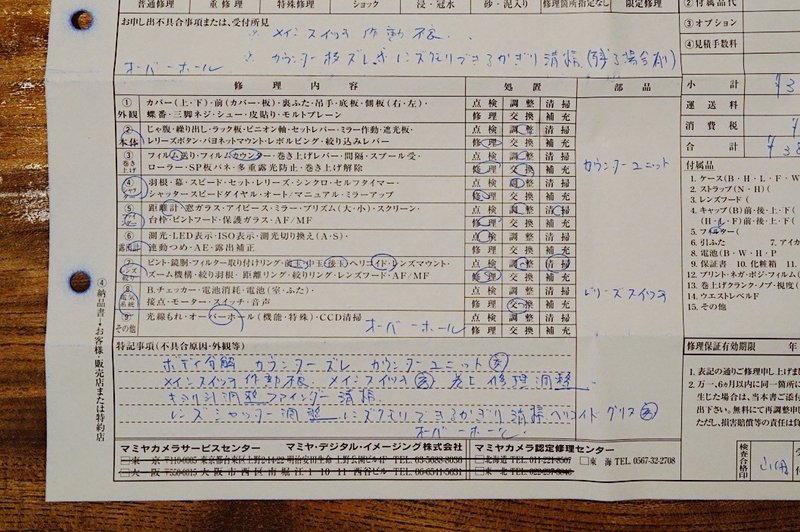 普通修理 重修理 特殊修理 ショック 浸・冠水 砂・泥入り 修理箇所指定なし 限定修理
お申し出不具合事項または、受付所見
メインスイッチ作動
カウンター レンズくもりできるかぎり清掃(残る場合有)
オーバーホール
修理内容 処置 部品
①外観 カバー(上・下)・前(カバー・板)・裏ぶた・吊手・底板・側板(右・左)・
蝶番・三脚ネジ・シュー・皮貼り・モルトプレーン
点検 調整 清掃
修理 交換 補充
②本体 じゃ腹・繰り出し・ラック板・ピニオン軸・セットレバー・ミラー作動・遮光板・
レリーズボタン・バヨネットマウント・レボルビング・絞り込みレバー
点検 調整 清掃
修理 交換 補充
③巻き上げ フィルム送り・フィルムカウンター・巻き上げレバー・間隔・スプール受・
ローラー・SP板バネ・多重露光防止・巻き上げ解除
点検 調整 清掃
修理 交換 補充
カウンターユニット
④ 羽根・幕・スピード・セット・レリーズ・シンクロ・セルフタイマー・
シャッタースピードダイヤル・オート・マニュアル・ミラーアップ
点検 調整 清掃
修理 交換 補充
⑤ 距離計・窓ガラス・アイピース・ミラー・プリズム(大・小)・スクリーン・
台枠・ピントフード・保護ガラス・AF/MF
点検 調整 清掃
修理 交換 補充
⑥露出計 測光・LED表示・ISO表示・測光切り換え(A・S)・
連動つめ・AE・露出補正
点検 調整 清掃
修理 交換 補充
⑦レンズ ピント・鏡胴・フィルター取り付けリング・前玉・中玉・後玉・ヘリコイド・レンズマウント・
ズーム機構・絞り羽根・距離リング・絞りリング・レンズフード・AF/MF
点検 調整 清掃
修理 交換 補充
⑧電気系統 B.チェッカー・電池消耗・電池(室・ふた)・
接点・モーター・スイッチ・音声
点検 調整 清掃
修理 交換 補充
レリーズスイッチ
⑨その他 光線もれ・オーバーホール(機能・特殊)・CCD清掃
オーバーホール
点検 調整 清掃
修理 交換 補充
特記事項(不具合原因・外観等)
ボディ分解 カウンターズレ カウンターユニット交
メインスイッチ作動 メインスイッチ交 巻上修理調整
調整 ファインダー清掃
レンズシャッター調整 レンズくもりできるかぎり清掃 ヘリコイドグリス交
オーバーホール
マミヤカメラサービスセンター マミヤ・デジタル・イメージング株式会社
□東京 〒110-0005 東京都台東区上野
□大阪 大阪市西区南堀江
マミヤカメラ認定修理センター
□北海道 TEL.011-221-8507 □東海 TEL 0567-32-2708
□東北
④納品書→お客様・販売店または特約店
②付属品代
③オプション
④見積手数料
小計
運送料
消費税
合計
付属品
1. ケース(B・H・L・F・W
2. ストラップ(N・H)(
3. レンズフード(
4. キャップ(B)前・後・上・下(
(H・L・F)前・後・上・下(
5. フィルター(
6. 引ぶた 7. アイカ
8. 電池(B・W・H・P
9. 保証書 10. 化粧箱 11.
12. プリント・ネガ・ポジ・フィルム(
13. 巻き上げクランク・ノブ・視度(
14. ウエストレベルF
15. その他
修理保証有効期限 年
1. 表記の通りご修理申し上げま
2. 万一、6ヵ月以内に同一箇所に
生した場合は、当本書ご添付
出下さい。無料にて再調整申
ただし、損害賠償等の責任は負
検査合格印